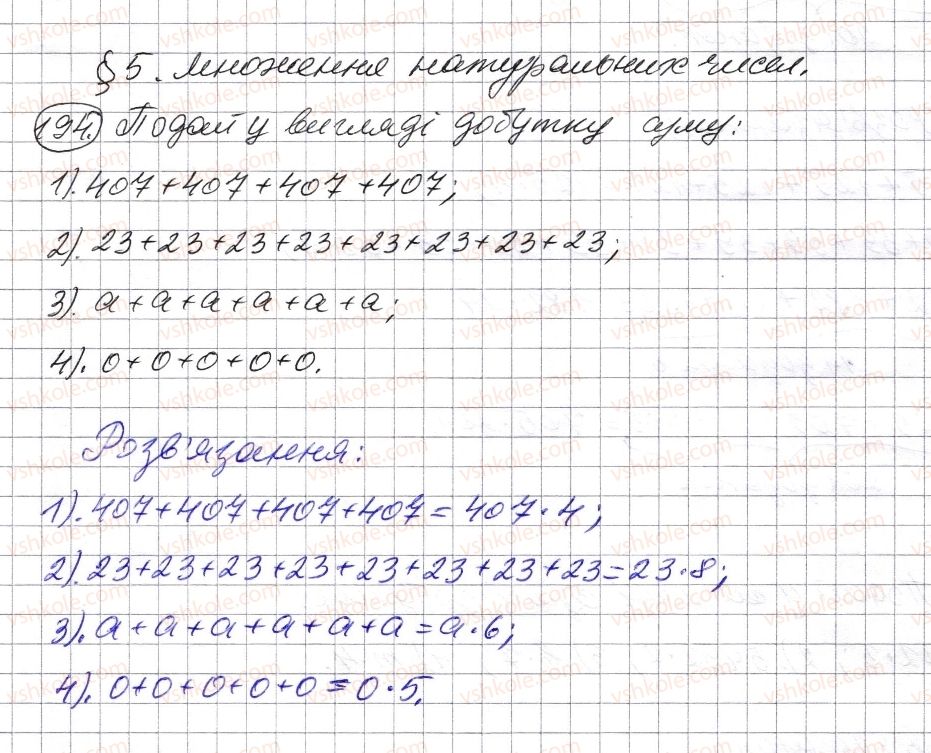 § 5. Множення натуральних чисел.
194. Подай у вигляді добутку суму:
1). 407+407+407+407;
2). 23+23+23+23+23+23+23+23;
3). a+a+a+a+a+a;
4). 0+0+0+0+0.
Розв'язання:
1). 407+407+407+407=407·4;
2). 23+23+23+23+23+23+23+23=23·8;
3). a+a+a+a+a+a=a·6;
4). 0+0+0+0+0=0·5.
vshkole.com